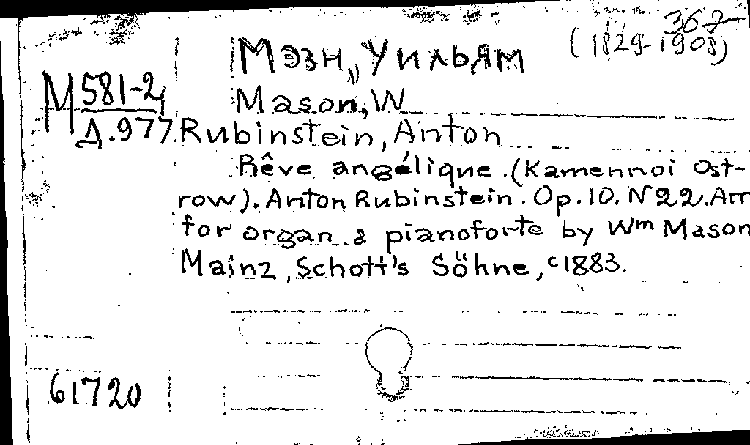 367
Мэзн, Уильям (1829-1908)
М 581-2 Mason, W
Д.977 Rubinstein, Anton
Rêve angélique. (Kamennoi Ost-
row). Anton Rubinstein. Op.10. N22. Arr
for organ & pianoforte by Wm Mason
Mainz, Schott's Söhne, c1883.
61720